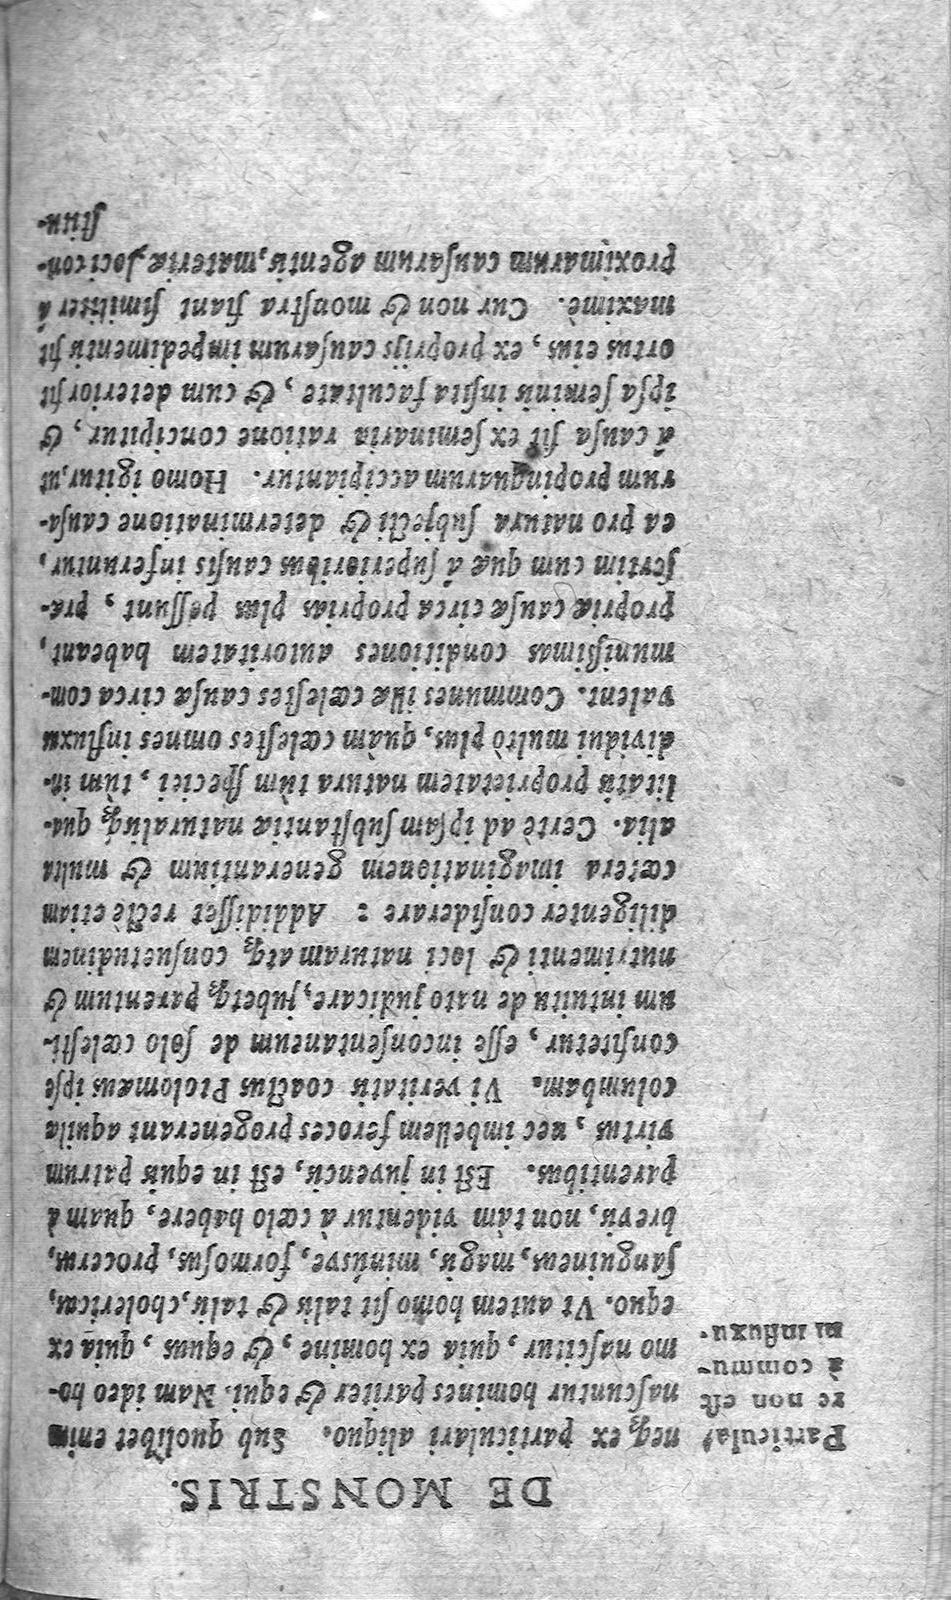 DE MONSTRIS.
Particula-
re non est
à commu-
ni influxu.
neq; ex particulari aliquo. Sub quolibet enim
nascuntur homines pariter & equi. Nam ideo ho-
mo nascitur, quia ex homine, & equus, quia ex
equo. Vt autem homo sit talis & talis, cholericus,
sanguineus, magis, minúsve, formosus, procerus,
brevis, non tàm videntur à cœlo habere, quam à
parentibus. Est in juvencis, est in equis patrum
virtus, nec imbellem feroces progenerant aquilæ
columbam. Vi veritatis coactus Ptolomæus ipse
confitetur, esse inconsentaneum de solo cœlesti-
um intuitu de nato judicare, jubetq; parentum &
nutrimenti & loci naturam atq; consuetudinem
diligenter considerare: Addidisset rectè etiam
cœtera imaginationem generantium & multa
alia. Certè ad ipsam substantiæ naturalisq; qua-
litatis proprietatem natura tùm speciei, tùm in-
dividui multò plus, quàm cœlestes omnes influxus
valent. Communes illæ cœlestes causæ circa com-
munissimas conditiones autoritatem habeant,
propriæ causæ circa proprias plus possunt, præ-
sertim cum quæ á superioribus causis inferuntur,
ea pro natura subjecti & determinatione causa-
rum propinquarum accipiantur. Homo igitur, ut
á causa fit ex seminaria ratione concipitur, &
ipsa seminis insita facultate, & cum deterior fit
ortus eius, ex proprijs causarum impedimentis fit
maximè. Cur non & monstra fiant similiter á
proximarum causarum agentis, materiæ, loci con-
stitu-